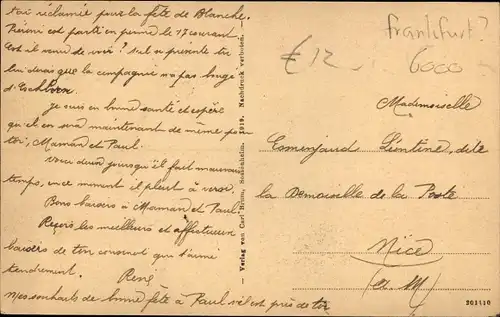 t'ai réclamé pour la fête de Blanche.
Pierini est parti en perme le 17 courant
Est-il venu de voir? s'il se présente tu
lui diras que la compagnie n'a pas bougé
d'Eschborn
Je suis en bonne santé et espère
qu'il en sera maintenant de même pour
toi, Maman et Paul.
jours qu'il fait mauvais
temps, en ce moment il pleut à verse.
Bons baisers à Maman et Paul.
Reçois les meilleurs et affectueux
baisers de ton qui t'aime
tendrement.
René
Mes souhaits de bonne fête à Paul s'il est près de toi
Verlag von Carl Brun, 1919. Nachdruck verboten.
Frankfurt?
€12
6000
Mademoiselle
Esmenjaud Léontine, dite
la Demoiselle de la Poste
Nice
(A. M)
201110